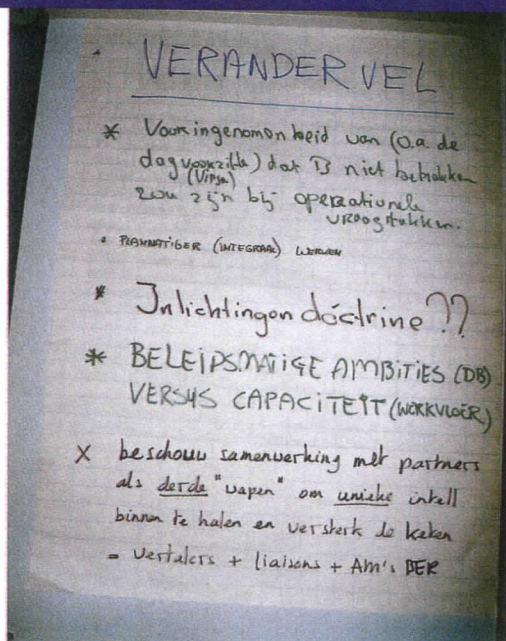 VERANDERVEL
* Vooringenomenheid van (o.a. de
dagvoorzitter) dat B niet betrokken
(Vipsa)
zou zijn bij operationele
vraagstukken.
• PLANMATIGER (INTEGRAAL) WERKEN
* Inlichtingendoctrine??
* BELEIDSMATIGE AMBITIES (DB)
VERSUS CAPACITEIT (WERKVLOER)
X beschouw samenwerking met partners
als derde "wapen" om unieke intell
binnen te halen en versterk de keten
= vertalers + liaisons + AM's BER